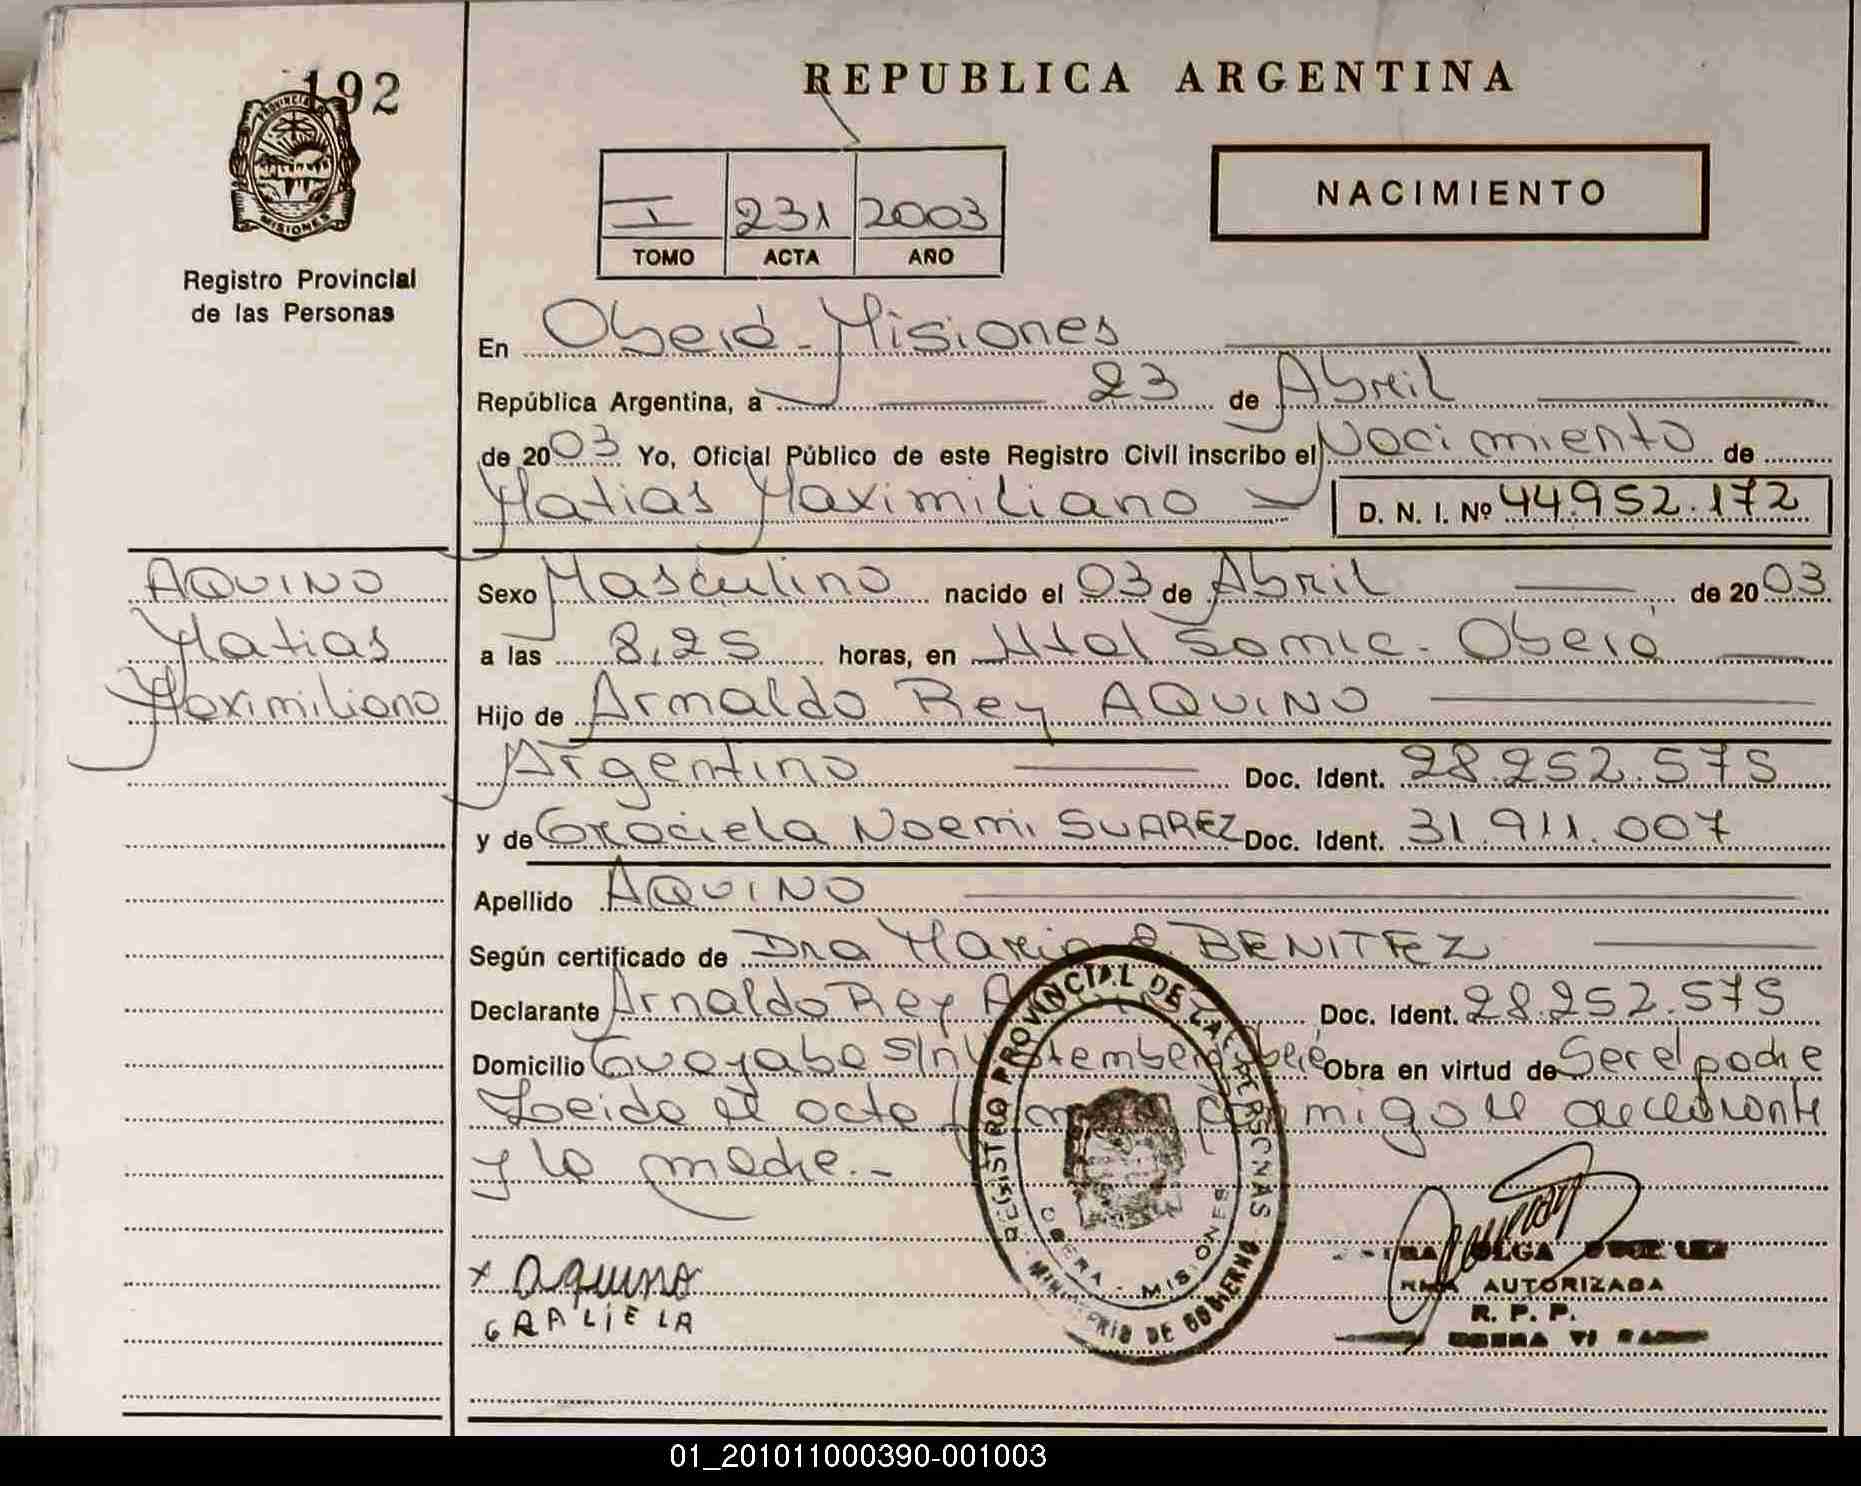 192
PROVINCIA DE
MISIONES
Registro Provincial
de las Personas
REPUBLICA ARGENTINA
I 231 2003
TOMO ACTA AÑO
NACIMIENTO
En Oberá - Misiones
República Argentina, a 23 de Abril
de 2003 Yo, Oficial Público de este Registro Civil inscribo el Nacimiento de
Matias Maximiliano D. N. I. Nº 44.952.172
AQUINO
Matias
Maximiliano
Sexo Masculino nacido el 03 de Abril de 2003
a las 8,25 horas, en Htal Samic - Oberá
Hijo de Arnaldo Rey AQUINO
Argentino Doc. Ident. 28.252.575
y de Graciela Noemi SUAREZ Doc. Ident. 31.911.007
Apellido AQUINO
Según certificado de Dra Maria E. BENITEZ
Declarante Arnaldo Rey Doc. Ident. 28.252.575
Domicilio Guayabo S/n Obra en virtud de Ser el padre
Leida el acta migo el declarante
y la madre.-
REGISTRO PROVINCIAL DE LAS PERSONAS
OBERA - MISIONES
MINISTERIO DE GOBIERNO
x Aquino
GRALIELA
OLGA
AUTORIZADA
R. P. P.
01_201011000390-001003